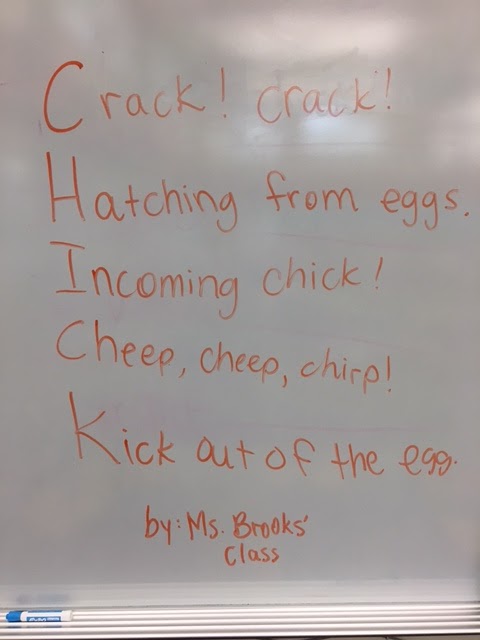 Crack! crack!
Hatching from eggs.
Incoming chick!
Cheep, cheep, chirp!
Kick out of the egg.
by: Ms. Brooks'
Class